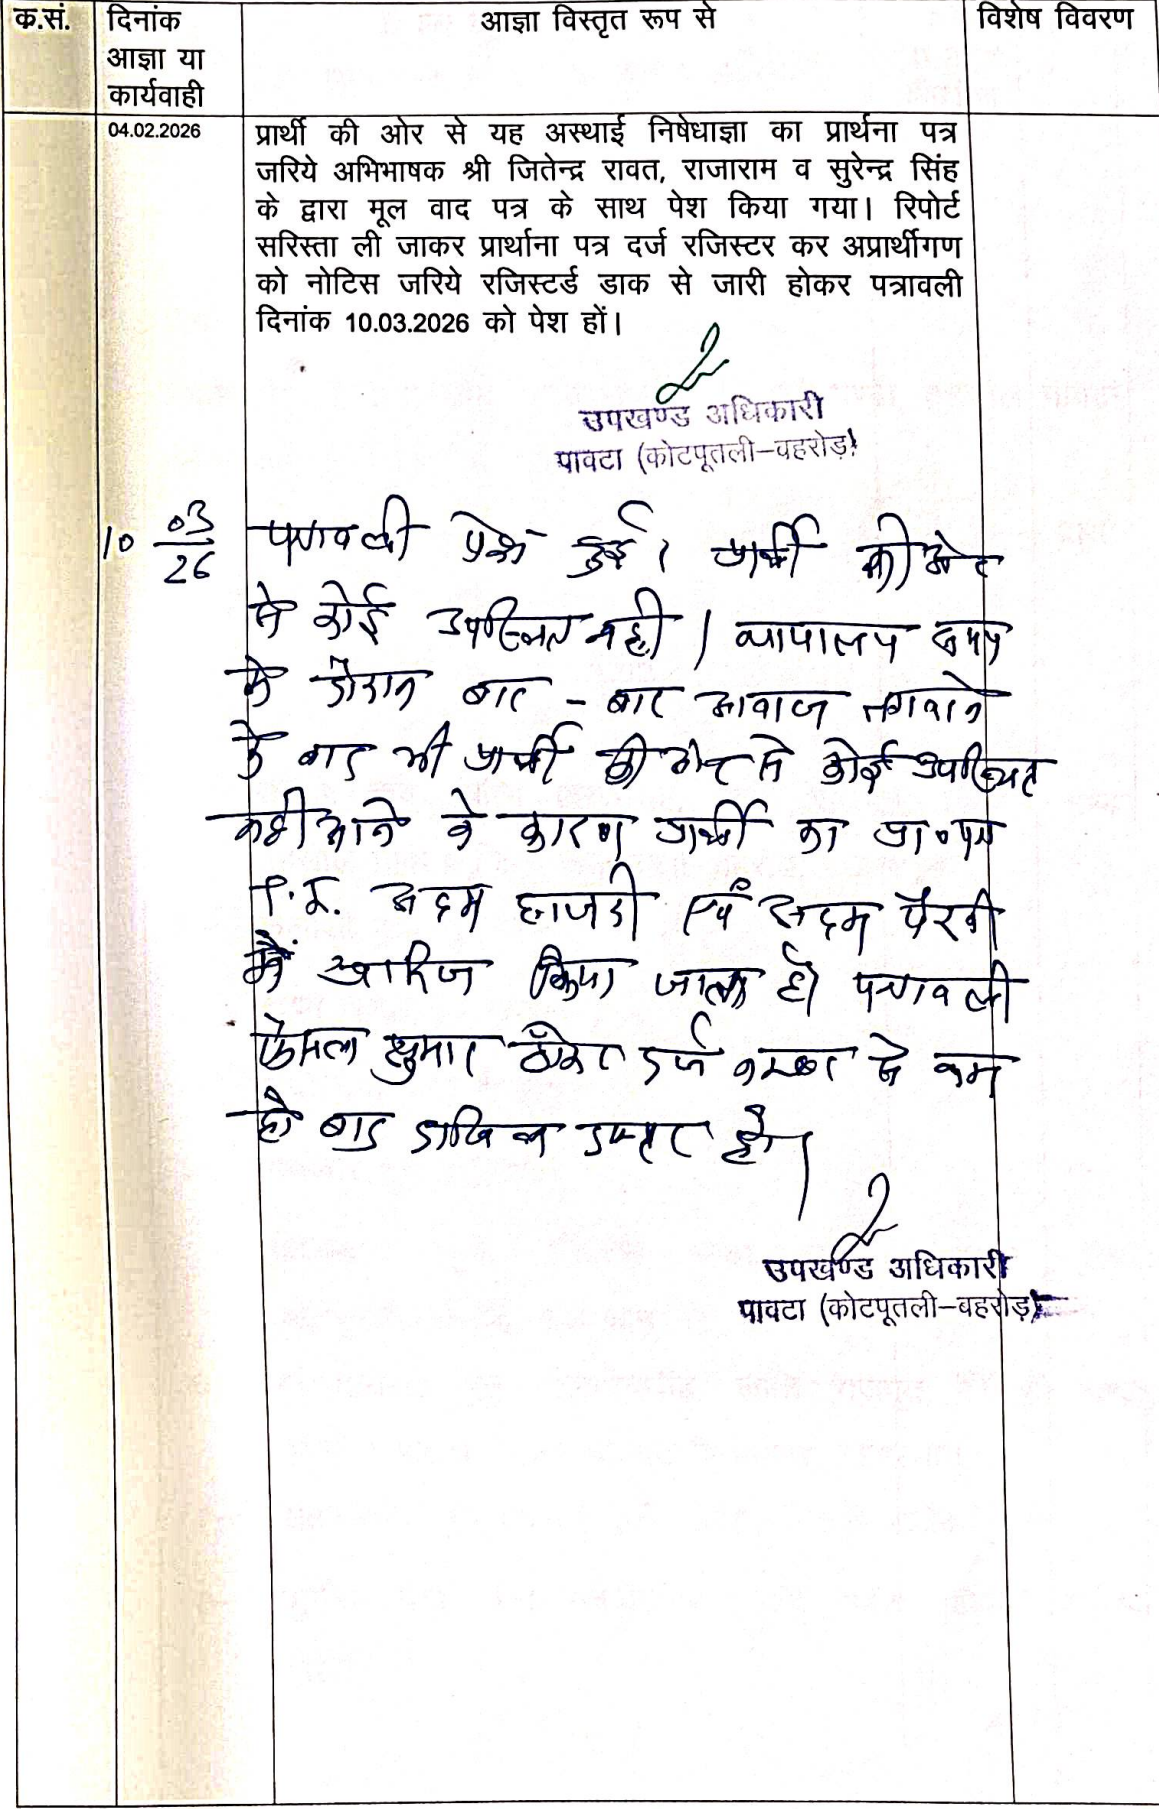 क.सं.
दिनांक
आज्ञा या
कार्यवाही
आज्ञा विस्तृत रूप से
विशेष विवरण
04.02.2026
प्रार्थी की ओर से यह अस्थाई निषेधाज्ञा का प्रार्थना पत्र
जरिये अभिभाषक श्री जितेन्द्र रावत, राजाराम व सुरेन्द्र सिंह
के द्वारा मूल वाद पत्र के साथ पेश किया गया। रिपोर्ट
सरिस्ता ली जाकर प्रार्थाना पत्र दर्ज रजिस्टर कर अप्रार्थीगण
को नोटिस जरिये रजिस्टर्ड डाक से जारी होकर पत्रावली
दिनांक 10.03.2026 को पेश हों।
उपखण्ड अधिकारी
पावटा (कोटपूतली-बहरोड़)
10 03/26
पत्रावली पेश हुई। प्रार्थी की ओर
से कोई उपस्थित नही। न्यायालय समय
के दौरान बार - बार आवाज लगवाने
के बाद भी प्रार्थी की ओर से कोई उपस्थित
नही आने के कारण प्रार्थी का प्रा०पत्र
T.I. अदम हाजरी एवं अदम पैरवी
में खारिज किया जाता है। पत्रावली
फैसल शुमार होकर दर्ज नम्बर से कम
हो बाद दाखिल दफ्तर हो।
उपखण्ड अधिकारी
पावटा (कोटपूतली-बहरोड़)